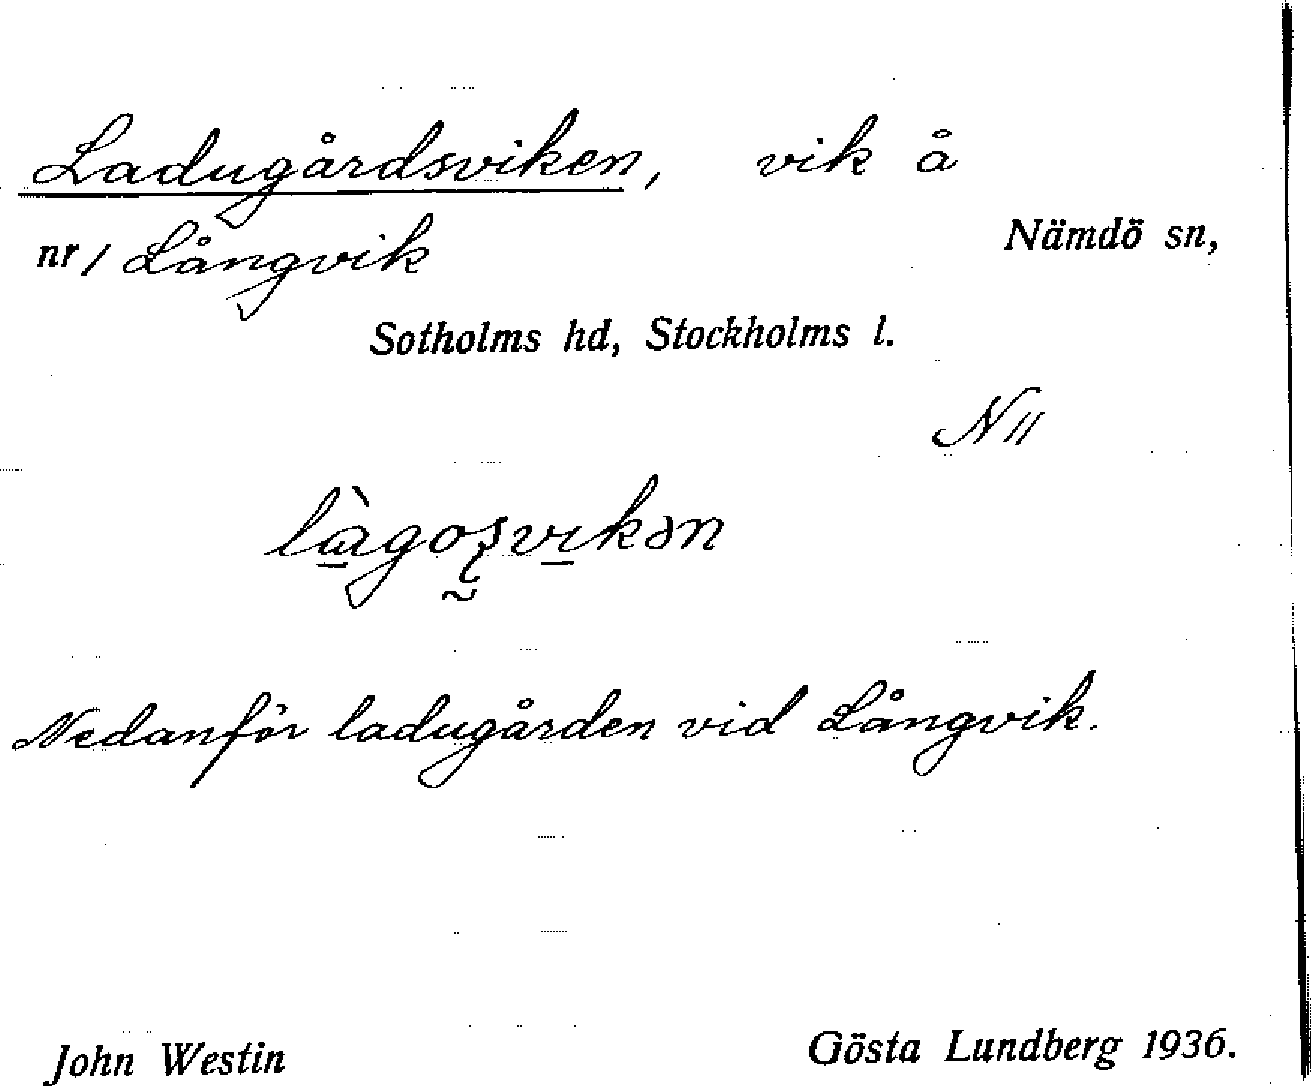 Ladugårdsviken, vik å
nr 1 Långvik
Nämdö sn,
Sotholms hd, Stockholms l.
N11
Nedanför ladugården vid Långvik.
John Westin
Gösta Lundberg 1936.